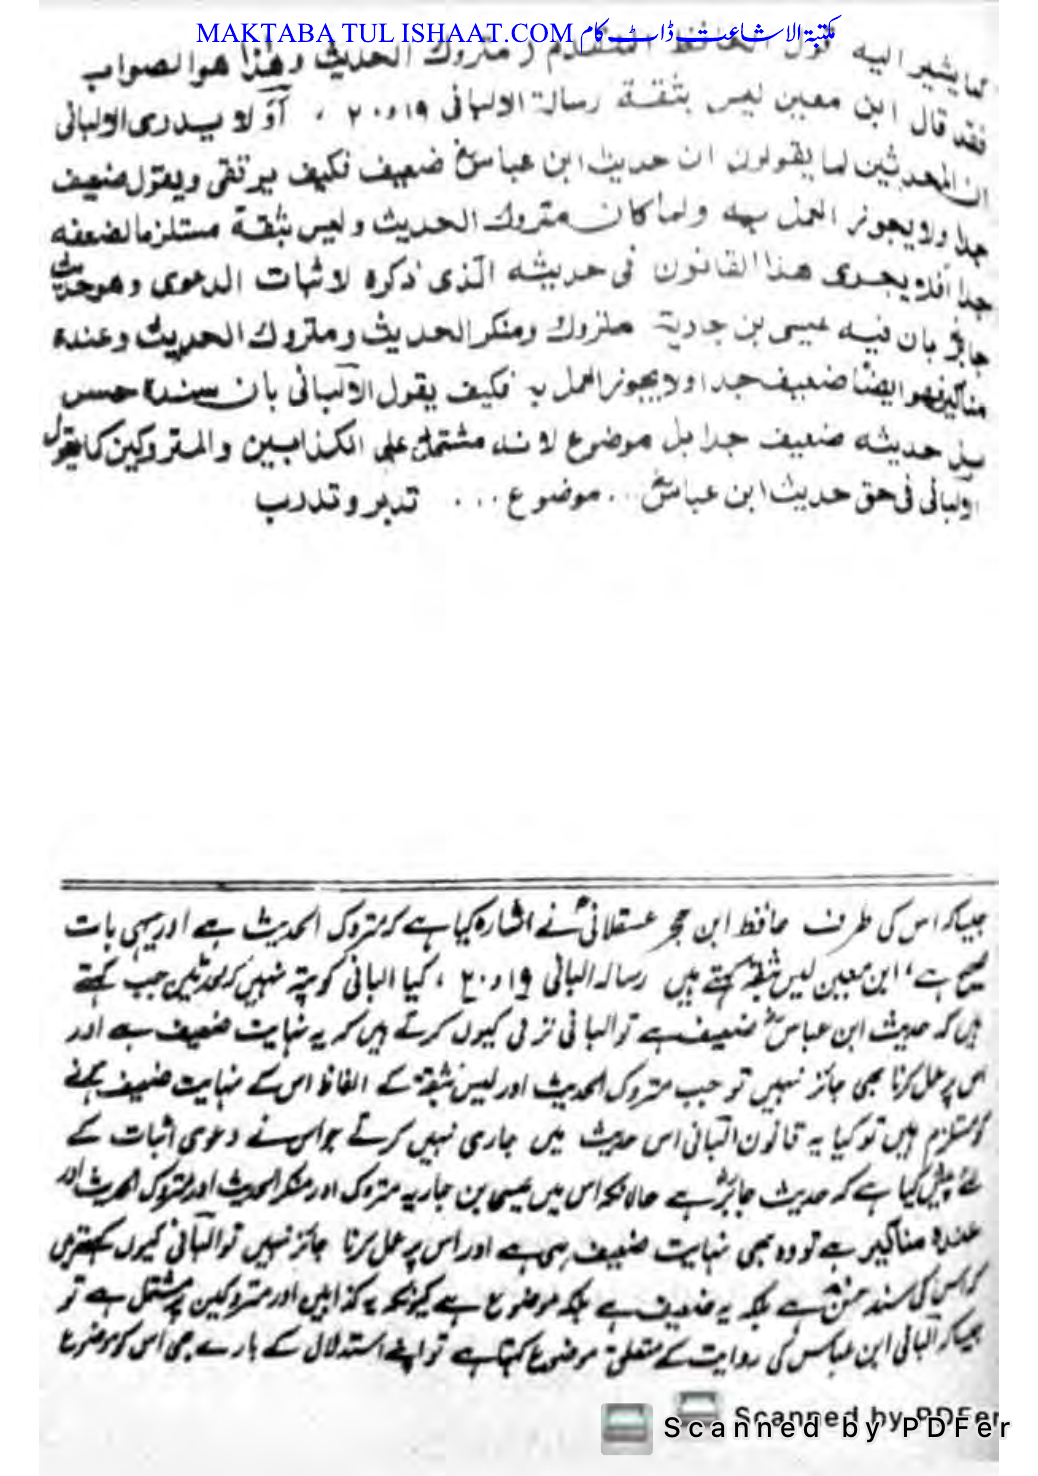 MAKTABA TUL ISHAAT.COM مکتبۃ الاشاعت ڈاٹ کام
کما یشیر الیه قول الحافظ المتقدم (متروك الحدیث وهٰذا هوا لصواب
فقد قال ابن معین لیس بثقة رسالة الالبانی ۱۹ و۲۰ ، أوّلا یدری الالبانی
ان المحدثین لما یقولون ان حدیث ابن عباسؓ ضعیف فکیف یرتقی ویقول ضعیف
جدا ولا یجوز العمل به ولما کان متروك الحدیث ولیس بثقة مستلزما لضعفه
جدا أفلا یجری هٰذا القانون فی حدیثه الّذی ذکره لاثبات الدعوی وهو حدیث
جابرؓ بان فیه عیسی بن جاریة متروك ومنکر الحدیث ومتروك الحدیث وعنده
مناکیر فهو ایضًا ضعیف جدا ولا یجوز العمل به فکیف یقول الالبانی بان سنده حسن
بل حدیثه ضعیف جدا بل موضوع لانه مشتمل علی الکذابین والمتروکین کما یقول
الالبانی فی حق حدیث ابن عباسؓ ... موضوع ... تدبر وتدرب
جیسا کہ اس کی طرف حافظ ابن حجر عسقلانیؒ نے اشارہ کیا ہے کہ متروک الحدیث ہے اور یہی بات
صحیح ہے، ابن معین لیس بثقۃ کہتے ہیں رسالہ البانی ۱۹ و۲۰ ، کیا البانی کو پتہ نہیں کہ محدثین جب کہتے
ہیں کہ حدیث ابن عباسؓ ضعیف ہے تو البانی ترقی کیوں کرتے ہیں کہ یہ نہایت ضعیف ہے اور
اس پر عمل کرنا بھی جائز نہیں تو جب متروک الحدیث اور لیس بثقۃ کے الفاظ اس کے نہایت ضعیف ہونے
کو مستلزم ہیں تو کیا یہ قانون البانی اس حدیث میں جاری نہیں کرتے جو اس نے دعوی اثبات کے
لئے پیش کیا ہے کہ حدیث جابرؓ ہے حالانکہ اس میں عیسی بن جاریہ متروک اور منکر الحدیث اور متروک الحدیث اور
عندہ مناکیر ہے تو وہ بھی نہایت ضعیف ہی ہے اور اس پر عمل کرنا جائز نہیں تو البانی کیوں کہتے ہیں
کہ اس کی سند حسن ہے بلکہ یہ ضعیف ہے بلکہ موضوع ہے کیونکہ یہ کذابین اور متروکین پر مشتمل ہے تو
جیسا کہ البانی ابن عباس کی روایت کے متعلق موضوع کہتا ہے تو اپنے استدلال کے بارے بھی اس کو موضوع
Scanned by PDFer
Scanned by PDFer